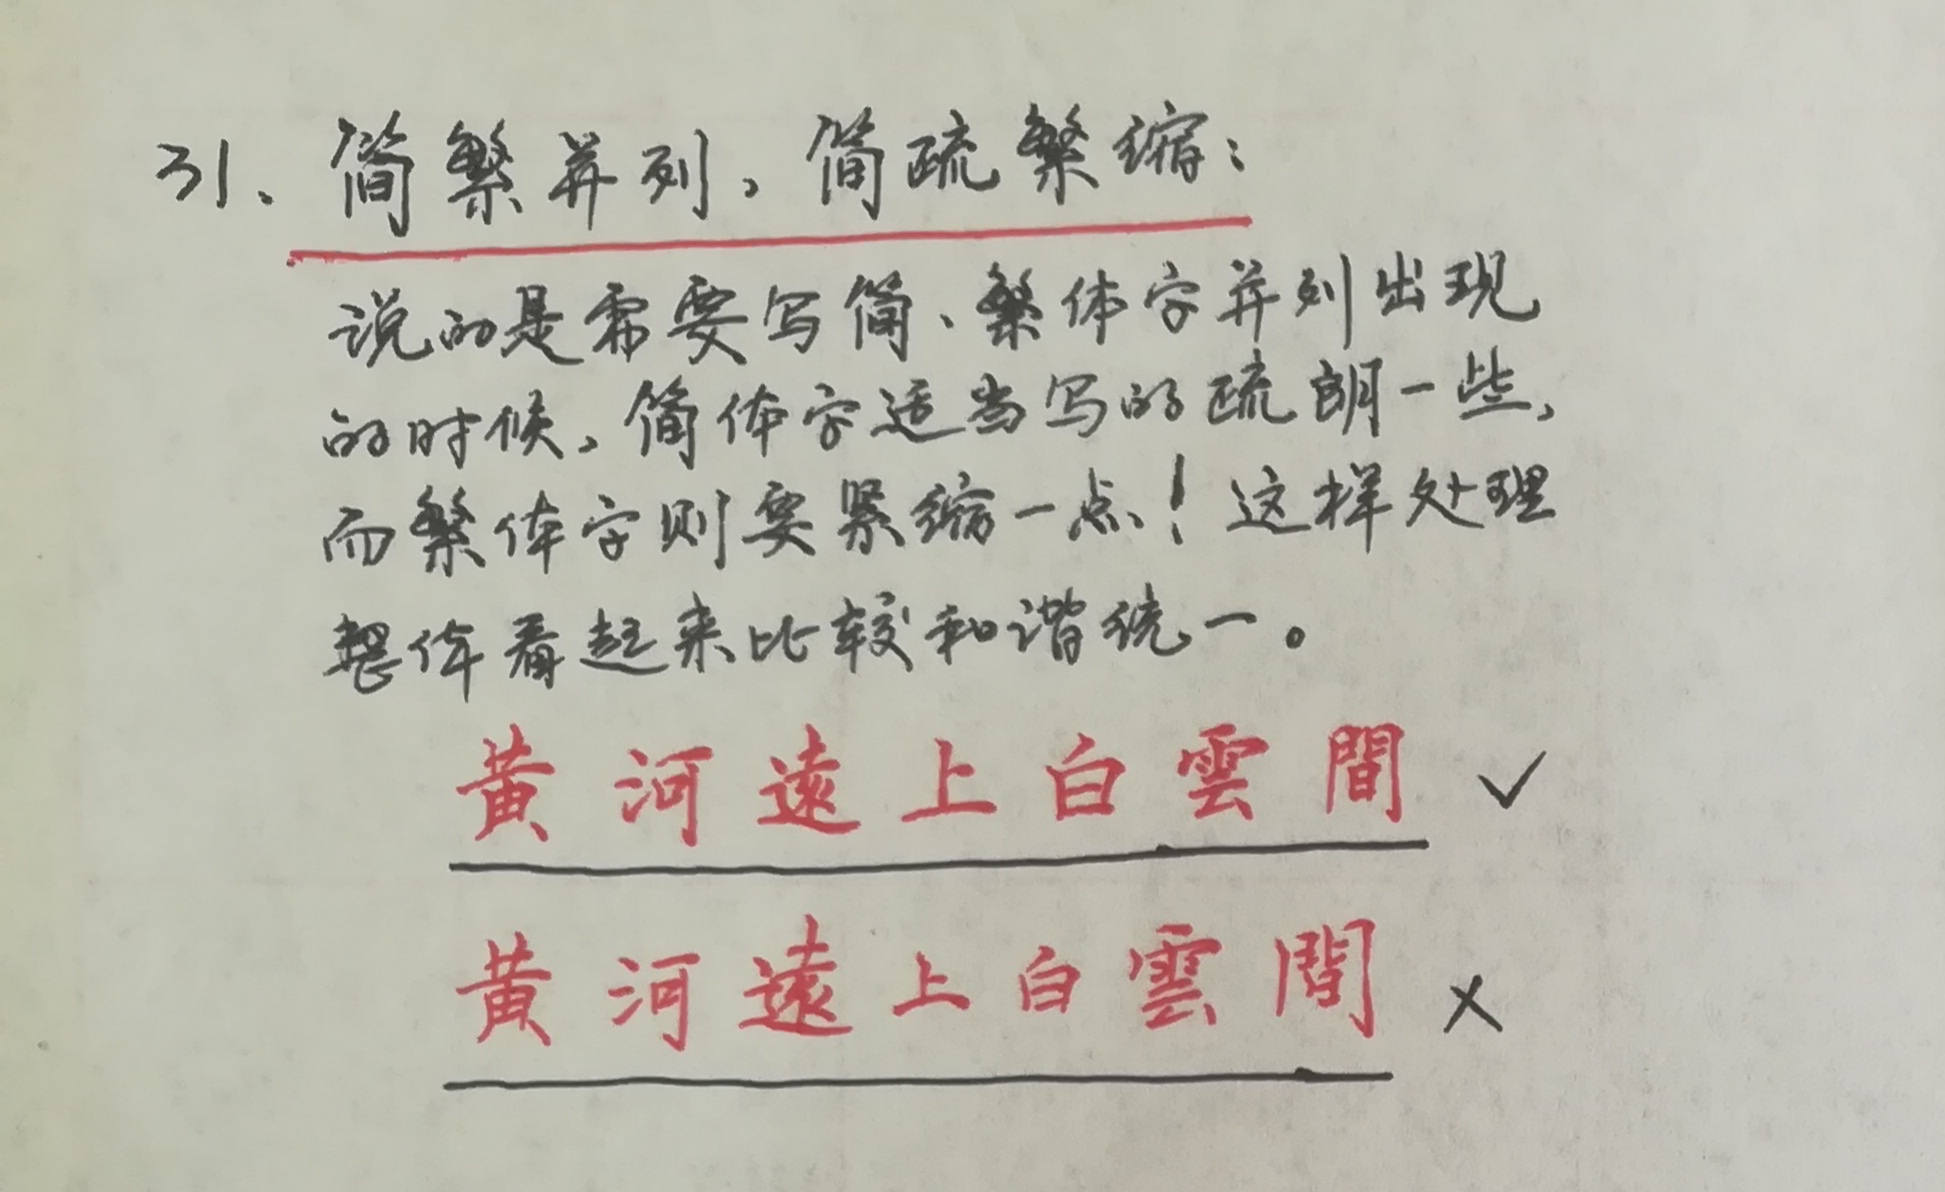 31、简繁并列,简疏繁缩:
说的是需要写简、繁体字并列出现
的时候,简体字适当写的疏朗一些,
而繁体字则要紧缩一点!这样处理
整体看起来比较和谐统一。
黄河遠上白雲間 ✓
黄河遠上白雲間 ×